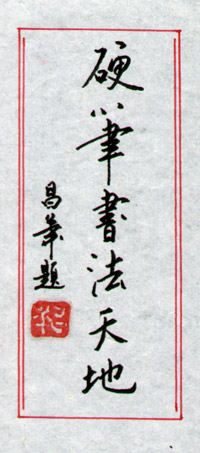 硬筆書法天地
昌華題